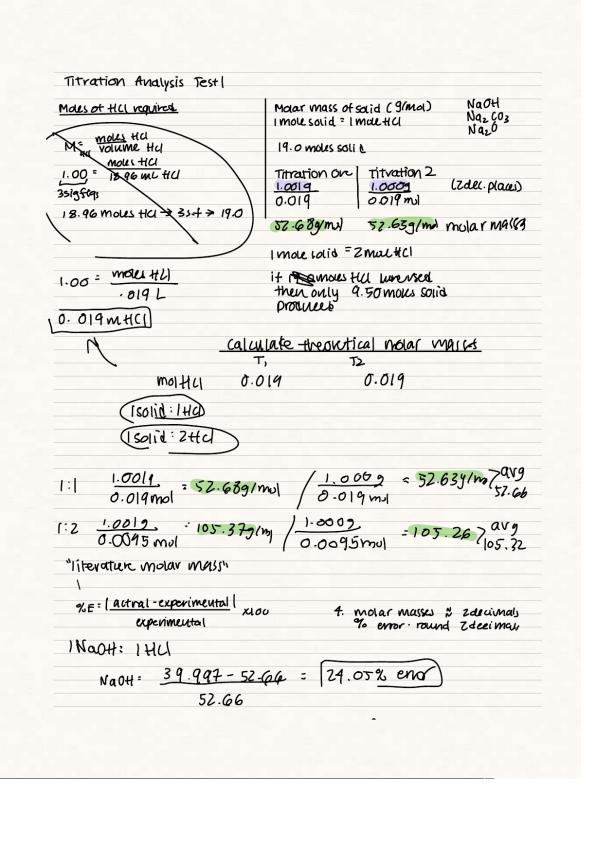 Titration Analysis Test 1
Moles of HCl required
M HCl = moles HCl / volume HCl
1.00 = moles HCl / 18.96 mL HCl
3 sig figs
18.96 moles HCl → 3sf → 19.0
1.00 = moles HCl / .019 L
0.019 m HCl
Molar mass of solid (g/mol)
1 mole solid = 1 mole HCl
NaOH
Na2CO3
Na2O
19.0 moles solid
Titration one | Titration 2
1.001g / 0.019 | 1.000g / 0.019 mol (2 dec. places)
52.68g/mol 52.63g/mol molar mass
1 mole solid = 2 mol HCl
if moles HCl were used
then only 9.50 moles solid
produced
Calculate theoretical molar masses
T1 T2
mol HCl 0.019 0.019
1 solid : 1 HCl
1 solid : 2 HCl
1:1 1.001g / 0.019 mol = 52.68g/mol / 1.000g / 0.019 mol = 52.63g/m > avg 52.66
1:2 1.001g / 0.0095 mol = 105.37g/m / 1.000g / 0.0095 mol = 105.26 > avg 105.32
"literature molar mass"
%E = |actual - experimental| / experimental x100
4. molar masses ≈ 2 decimals
% error · round 2 decimals
1 NaOH : 1 HCl
NaOH = 39.997 - 52.66 / 52.66 = 24.05% error